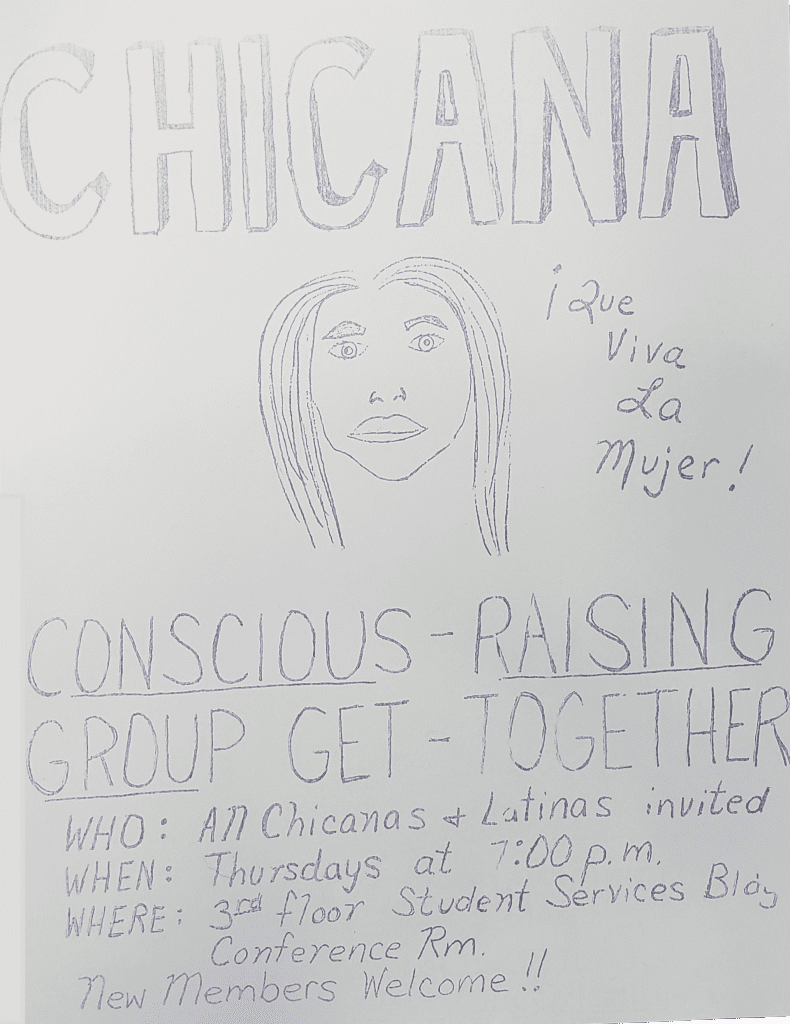 CHICANA
¡Que
Viva
La
Mujer!
CONSCIOUS-RAISING
GROUP GET-TOGETHER
WHO: All Chicanas & Latinas invited
WHEN: Thursdays at 7:00 p.m.
WHERE: 3rd floor Student Services Bldg
Conference Rm.
New Members Welcome!!